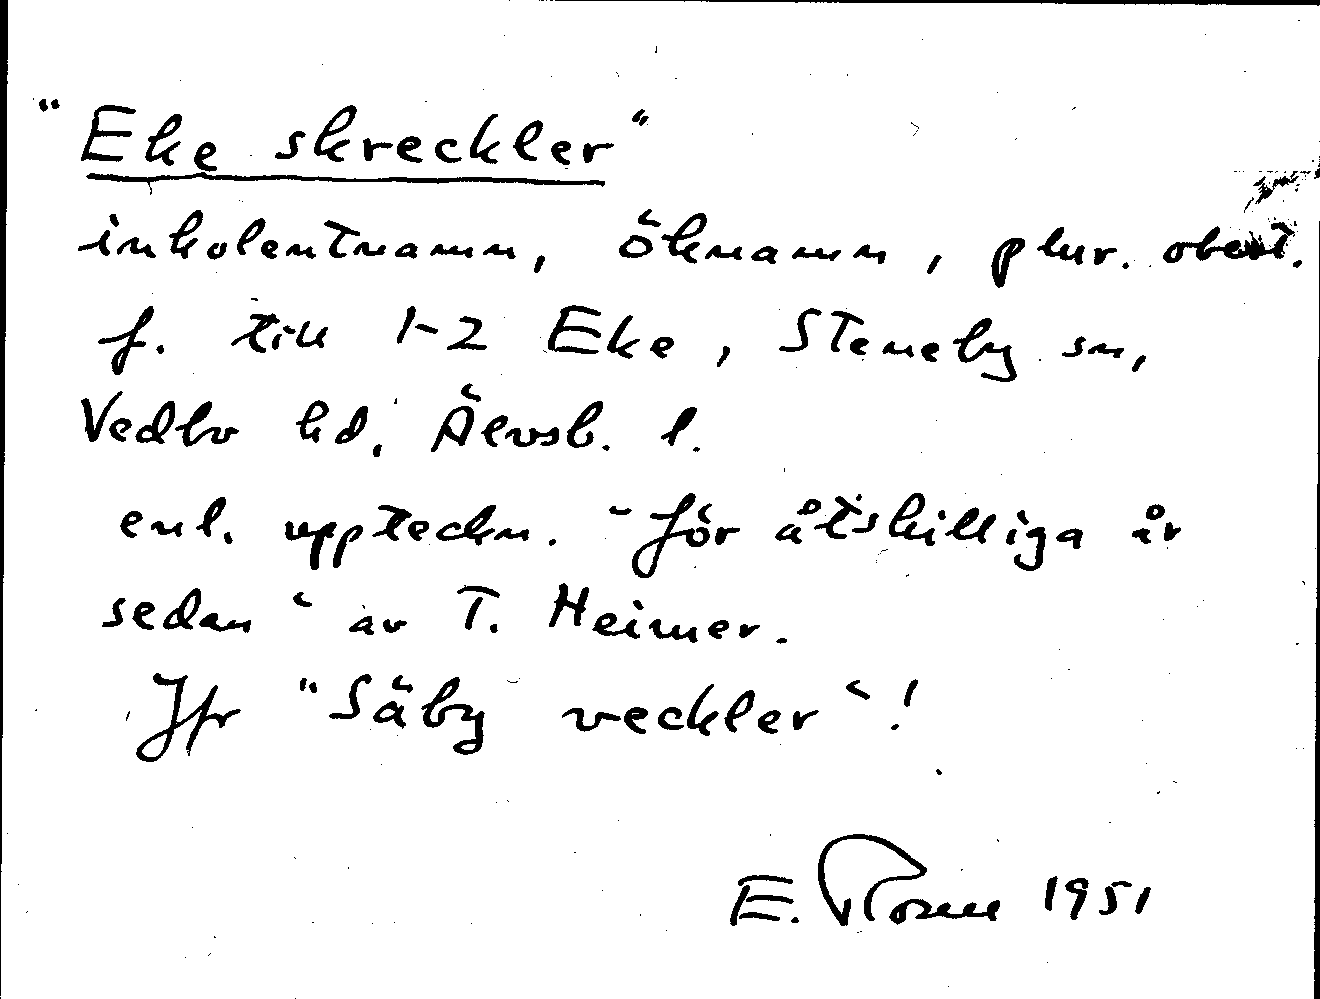 "Eke skreckler"
inkolentnamn, öknamn, plur. obest.
f. till 1-2 Eke, Steneby sn,
Vedbo hd, Älvsb. l.
enl. uppteckn. "för åtskilliga år
sedan" av T. Heimer.
Jfr "Säby veckler"!
E. 1951